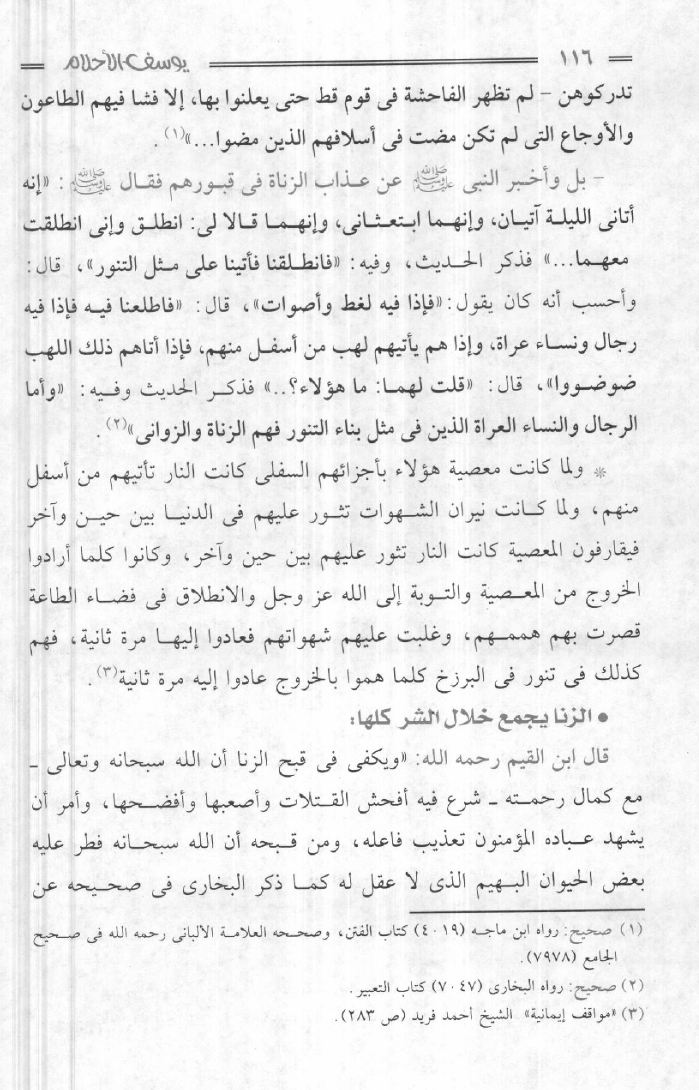 ١١٦ يوسف الأحلام
تدركوهن - لم تظهر الفاحشة فى قوم قط حتى يعلنوا بها، إلا فشا فيهم الطاعون
والأوجاع التى لم تكن مضت فى أسلافهم الذين مضوا...»(١).
- بل وأخبر النبى ﷺ عن عذاب الزناة فى قبورهم فقال ﷺ: «إنه
أتانى الليلة آتيان، وإنهما ابتعثانى، وإنهما قالا لى: انطلق وإنى انطلقت
معهما...» فذكر الحديث، وفيه: «فانطلقنا فأتينا على مثل التنور»، قال:
وأحسب أنه كان يقول: «فإذا فيه لغط وأصوات»، قال: «فاطلعنا فيه فإذا فيه
رجال ونساء عراة، وإذا هم يأتيهم لهب من أسفل منهم، فإذا أتاهم ذلك اللهب
ضوضووا»، قال: «قلت لهما: ما هؤلاء؟..» فذكر الحديث وفيه: «وأما
الرجال والنساء العراة الذين فى مثل بناء التنور فهم الزناة والزوانى»(٢).
* ولما كانت معصية هؤلاء بأجزائهم السفلى كانت النار تأتيهم من أسفل
منهم، ولما كانت نيران الشهوات تثور عليهم فى الدنيا بين حين وآخر
فيقارفون المعصية كانت النار تثور عليهم بين حين وآخر، وكانوا كلما أرادوا
الخروج من المعصية والتوبة إلى الله عز وجل والانطلاق فى فضاء الطاعة
قصرت بهم هممهم، وغلبت عليهم شهواتهم فعادوا إليها مرة ثانية، فهم
كذلك فى تنور فى البرزخ كلما هموا بالخروج عادوا إليه مرة ثانية(٣).
• الزنا يجمع خلال الشر كلها:
قال ابن القيم رحمه الله: «ويكفى فى قبح الزنا أن الله سبحانه وتعالى ـ
مع كمال رحمته ـ شرع فيه أفحش القتلات وأصعبها وأفضحها، وأمر أن
يشهد عباده المؤمنون تعذيب فاعله، ومن قبحه أن الله سبحانه فطر عليه
بعض الحيوان البهيم الذى لا عقل له كما ذكر البخارى فى صحيحه عن
(١) صحيح: رواه ابن ماجه (٤٠١٩) كتاب الفتن، وصححه العلامة الألبانى رحمه الله فى صحيح
الجامع (٧٩٧٨).
(٢) صحيح: رواه البخارى (٧٠٤٧) كتاب التعبير.
(٣) «مواقف إيمانية» الشيخ أحمد فريد (ص ٢٨٣).